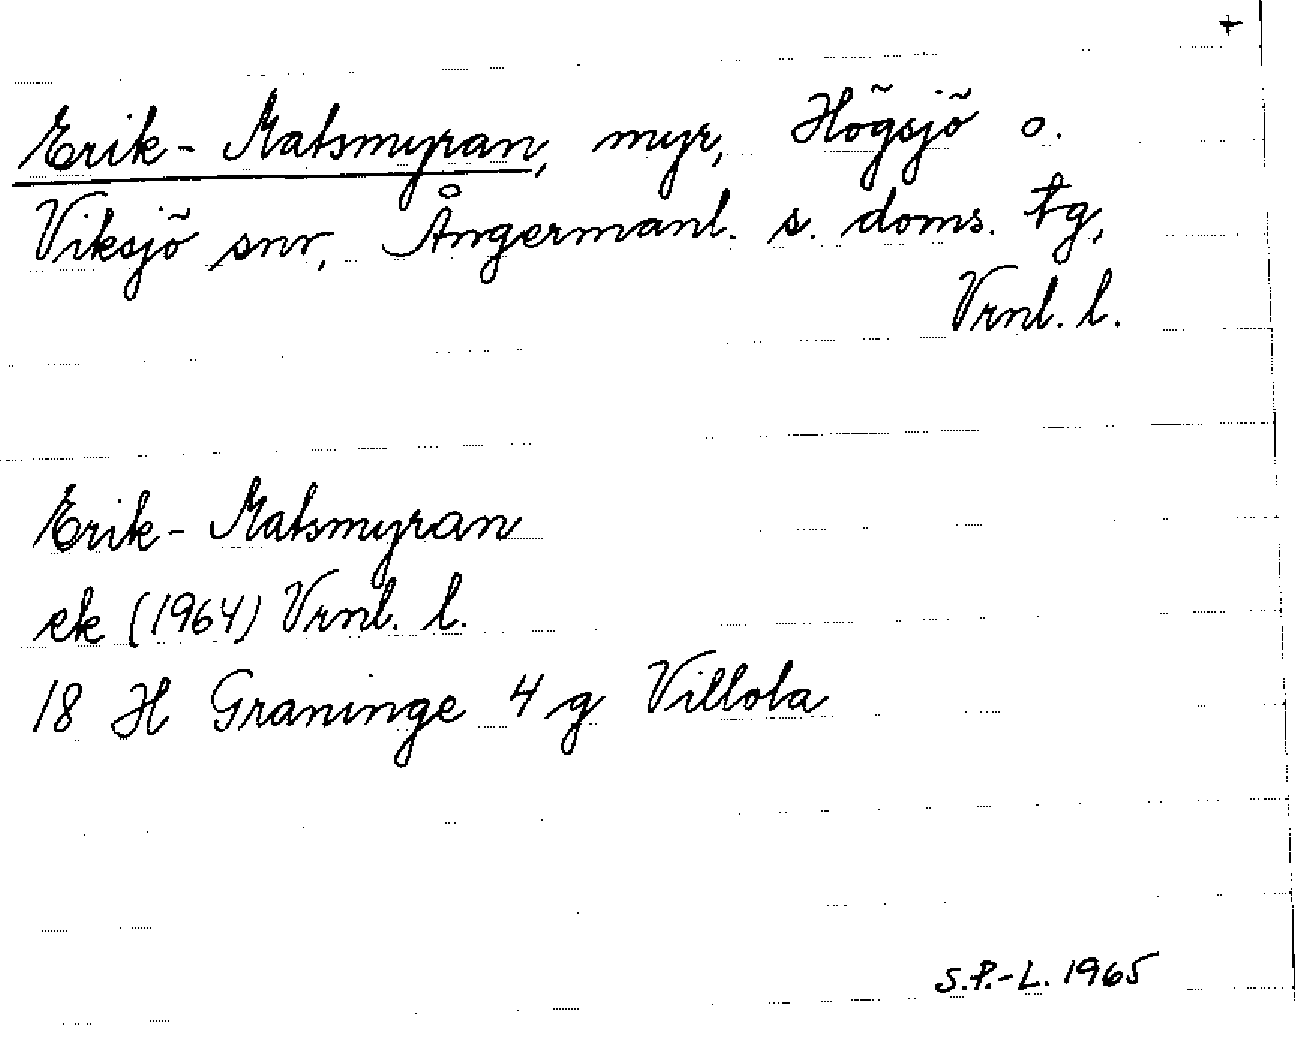 +
Erik-Matsmyran, myr, Högsjö o.
Viksjö snr, Ångermanl. s. doms. tg,
Vrnl. l.
Erik-Matsmyran
ek (1964) Vrnl. l.
18 H Graninge 4 g Villola
S.P.-L. 1965